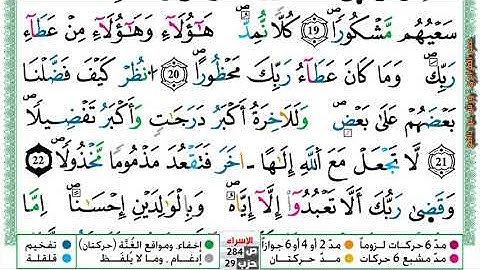 سَعْيُهُم مَّشْكُورًا ۝19 كُلًّا نُّمِدُّ هَٰٓؤُلَآءِ وَهَٰٓؤُلَآءِ مِنْ عَطَآءِ
رَبِّكَ ۚ وَمَا كَانَ عَطَآءُ رَبِّكَ مَحْظُورًا ۝20 ٱنظُرْ كَيْفَ فَضَّلْنَا
بَعْضَهُمْ عَلَىٰ بَعْضٍ ۚ وَلَلْآخِرَةُ أَكْبَرُ دَرَجَٰتٍ وَأَكْبَرُ تَفْضِيلًا
21 لَّا تَجْعَلْ مَعَ ٱللَّهِ إِلَٰهًا ـاخَرَ فَتَقْعُدَ مَذْمُومًا مَّخْذُولًا 22
وَقَضَىٰ رَبُّكَ أَلَّا تَعْبُدُوٓا۟ إِلَّآ إِيَّاهُ وَبِٱلْوَٰلِدَيْنِ إِحْسَٰنًا ۚ إِمَّا
مدّ 6 حركات لزوماً مدّ 2 أو 4 أو 6 جوازاً الإسراء إخفاء، ومواقع الغُنَّة (حركتان) تفخيم
مدّ مشبع 6 حركات مدّ حركتان ص 284 حزب 29 إدغام، وما لا يُلفَظ قلقلة